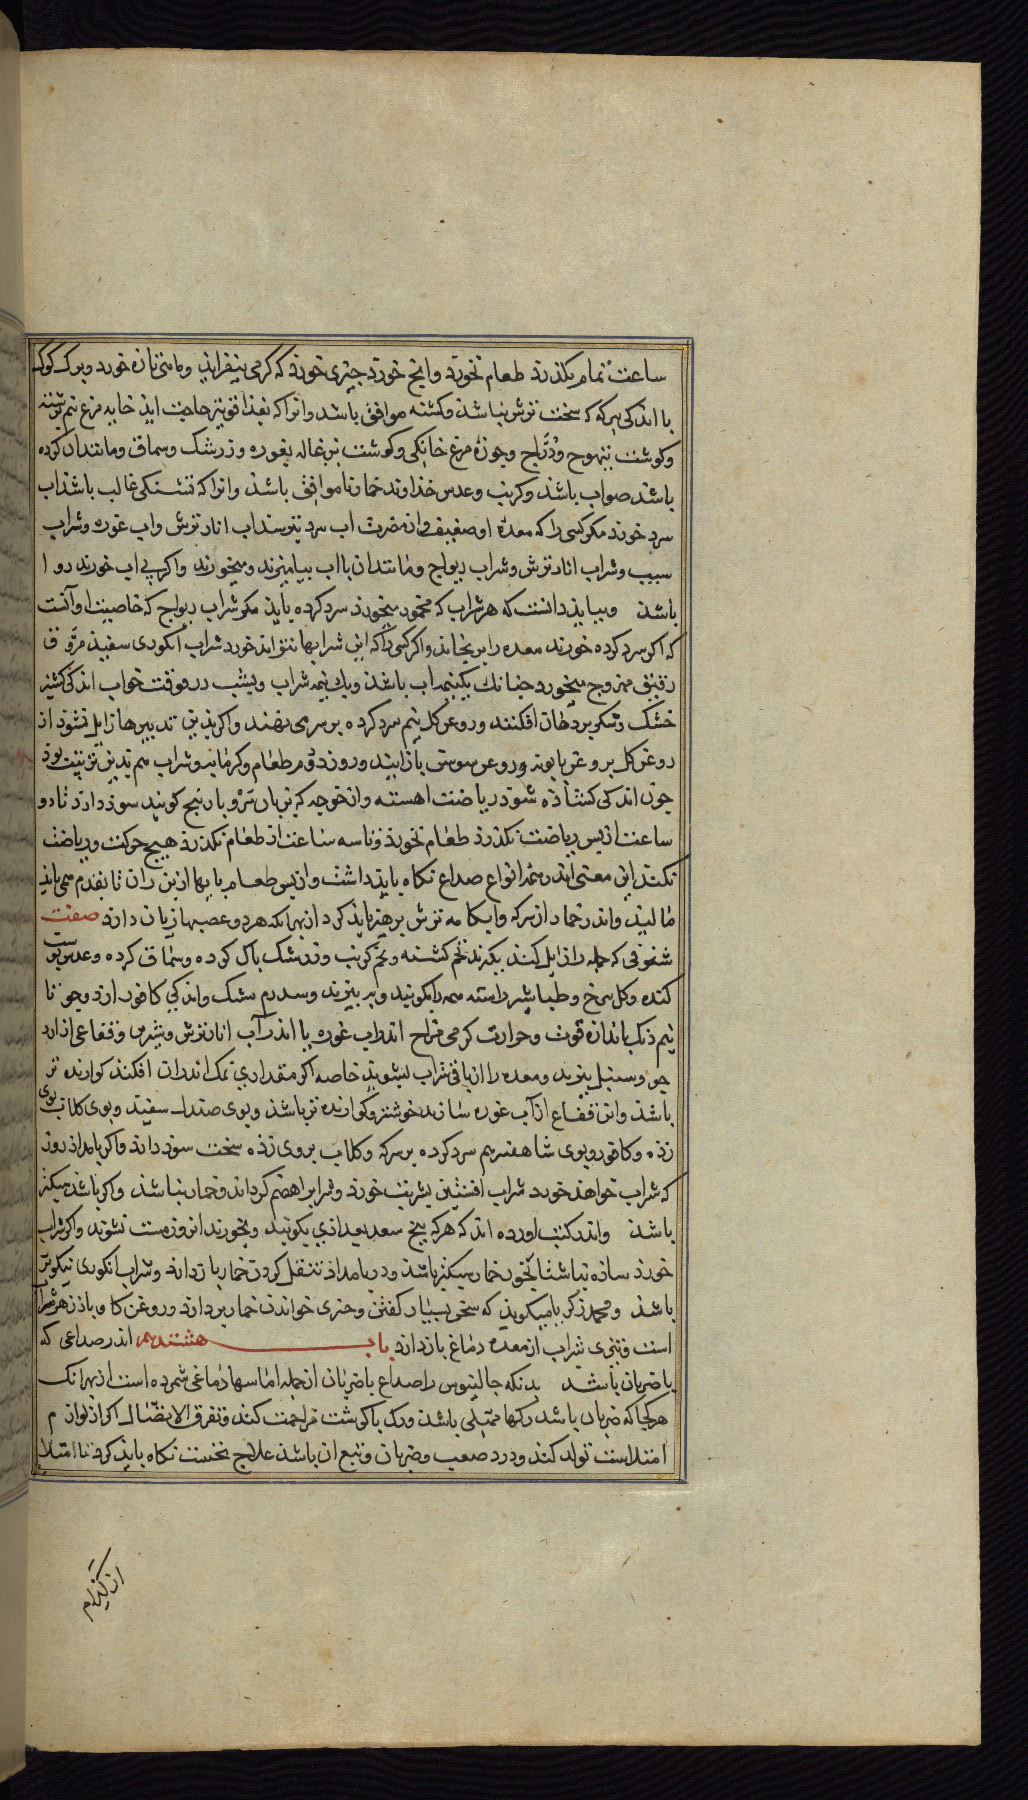 ساعت تمام بکذرد طعام نخورد وانج خورد جیزی خورد که کرمی نیفزاید وماهی تازه خورد وبرک کوک
با اندکی سرکه که سخت ترش نباشد وکشنه موافق باشد وانرا که بغذا قویتر حاجت اید خایه مرغ نیم برشته
وکوشت تیهوج ودراج وجوزه مرغ خانکی وکوشت بزغاله بغوره وزرشک وسماق ومانندان کرده
باشد صواب باشد وکرنب وعدس خداوند خمار را موافق باشد وانرا که تشنکی غالب باشد اب
سرد خورد مکر کسی را که معدۀ او ضعیف وازمضرت اب سرد بترسد اب انار ترش واب غوره وشراب
سیب وشراب انار ترش وشراب ریواج ومانندان بااب بیامیزند ومیخورند واکر بی اب خورند روا
باشد وبباید دانست که هرشراب که مخمور میخورد سرد کرده باید مکر شراب ریواج که خاصیت او آنست
که اکر سرد کرده خورند معده را برنجاند واکر کسی را که این شرابها نتواند خورد شراب انکوری سفید مروق
رقیق ممزوج میخورد جنانک یکنیمه اب باشد ویک نیمه شراب وبشب دروقت خواب اندکی کشنیز
خشک وشکر بردهان افکنند وروغن کل نیم سرد کرده برسر می نهند واکر بدین تدبیرها زایل نشود از
روغن کل بروغن بابونه وروغن سوسن بازایند وروز دوم طعام وکرمابه وشراب هم بدین ترتیب بود
جون اندکی کشاده شود ریاضت اهسته
ساعت ازپس ریاضت نکذرد طعام نخورد وتاسه ساعت از طعام نکذرد هیچ حرکت وریاضت
نکند این معنی اندر همه انواع صداع نکاه باید داشت وازپس طعام پایها از بن ران تا بقدم همی باید
مالید واندر خمار ازسرکه وابکامه ترش برهیز باید کرد ازبهر انکه هردو عصبها را زیان دارد صفت
سفوفی که خمار را زایل کند بکیرند تخم کشنه وتخم کرنب وزرشک باک کرده وسماق کرده وعدس پوست
کنده وکل سرخ وطباشیر راسته همه را بکوبند وببیزند وسه درم شنک واندکی کافور
نیم دنک باندازه قوت وحرارت کرمی مزاج اندراب غوره یا اندرآب انار ترش وبدهند وفقاعی از ارد
جو وسنبل بپزند ومعده را ازباقی شراب بشوید خاصه اکر مقداری نمک اندران افکند کوارنده تر
باشد واین فقاع ازآب غوره سازند خوشتر وکوارنده تر باشد وبوی صندل سفید وبوی کلاب بوی
زده وکافور وبوی شاهسفرم سرد کرده برسرکه وکلاب بروی زده سخت سود دارد واکر بامداد روز
که شراب خواهد خورد شراب افسنتین بشربت خورد وشراب را هضم کرداند وخمار نباشد واکر باشد سبکتر
باشد واندر کتب اورده اند که هرکه بیخ سعد بغدادی بکوبند وبخورند انروز مست نشوند واکر شراب
خورد ساده تباشتا بخورد خمار سبکتر باشد ودر بامداد تنقل کردن خمار باز دارد وشراب انکوری نیکوتر
باشد ومحمد زکریا میکوید که سخن بسیار کفتن وجیزی خواندن خمار ببرد ارد وروغن کاو باذزهر شراب
است وتیزی شراب ازمعده دماغ باز دارد باب هشتدهم اندر صداعی که
باضربان باشد بدنکه جالینوس را صداع باضربان ازجمله اماسها دماغی شمرده است ازبهر انک
هرکجا که ضربان باشد رکها ممتلی باشد ورک باکوشت مزاحمت کند وتفرق الاتصال که از لوازم
امتلاست تولد کند ودرد صعب وضربان وتبع ان باشد علاج نخست نکاه باید کرد تا امتلا
از کدام